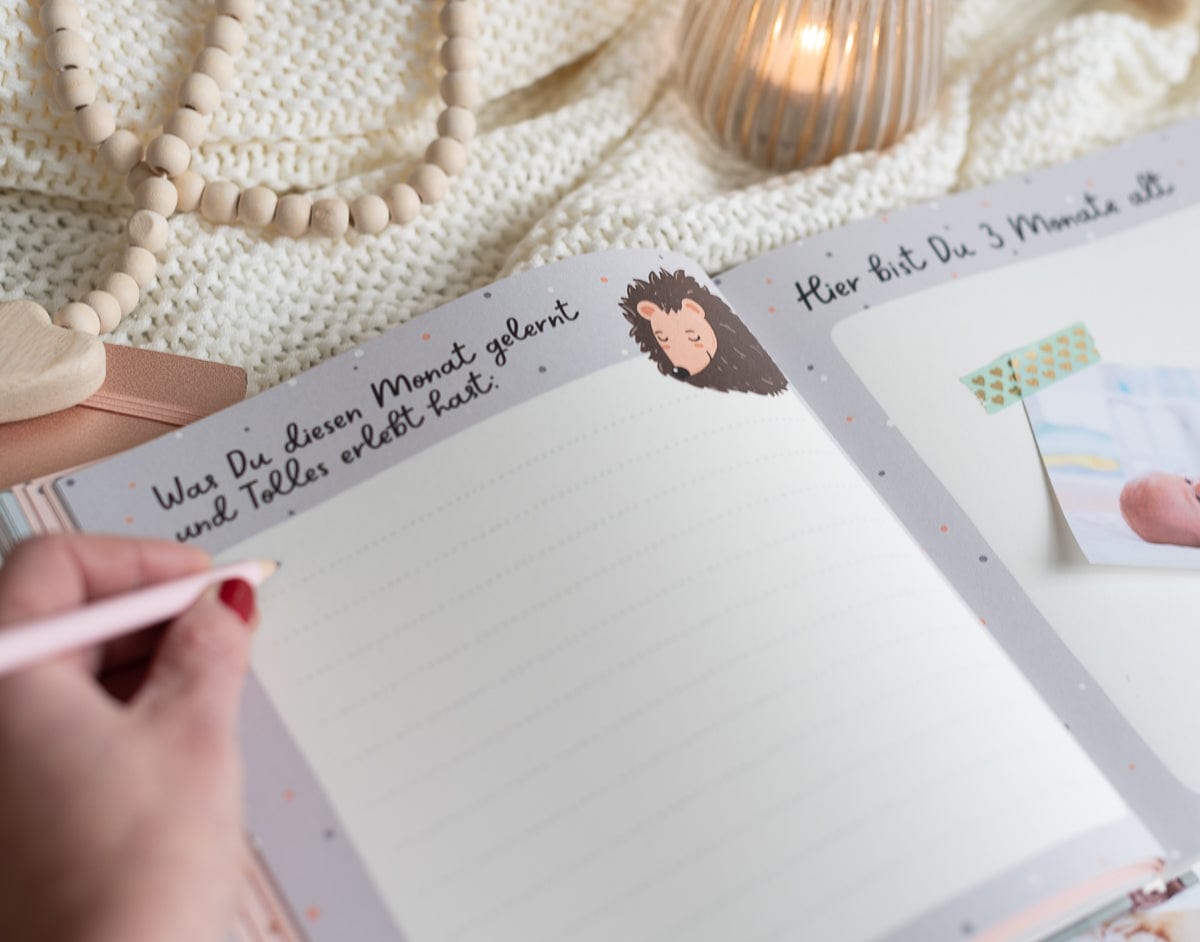 Was Du diesen Monat gelernt
und Tolles erlebt hast:
Hier bist Du 3 Monate alt